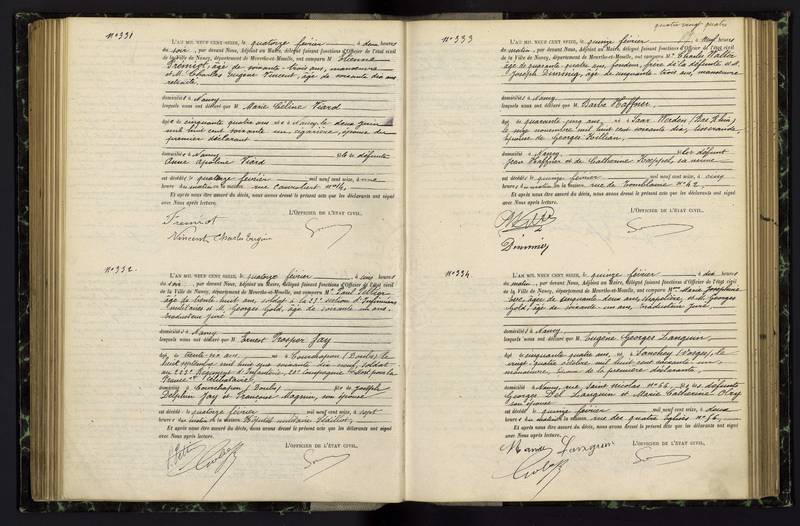 quatre vingt quatre
N° 331
L'AN MIL NEUF CENT SEIZE, le quatorze février à deux heures
du soir, par devant Nous, Adjoint au Maire, délégué faisant fonctions d'Officier de l'état civil
de la Ville de Nancy, département de Meurthe-et-Moselle, ont comparu M. Etienne
Fremiot, âgé de soixante-trois ans, manoeuvre
et M. Charles Eugène Vincent, âgé de soixante dix ans
retraité
domiciliés à Nancy
lesquels nous ont déclaré que M. Marie Céline Viard
âgée de cinquante quatre ans née à Nancy, le deux juin
mil huit cent soixante un cigarière, épouse du
premier déclarant
domiciliée à Nancy de défunte
Anne Apoline Viard
est décédée le quatorze février mil neuf cent seize, à une
heure du matin en la maison rue Canrobert N° 14,
Et après nous être assuré du décès, nous avons dressé le présent acte que les déclarants ont signé
avec Nous après lecture.
L'OFFICIER DE L'ÉTAT CIVIL,
Fremiot
Vincent Charles Eugène
N° 332.
L'AN MIL NEUF CENT SEIZE, le quatorze février à cinq heures
du soir, par devant Nous, Adjoint au Maire, délégué faisant fonctions d'Officier de l'état civil
de la Ville de Nancy, département de Meurthe-et-Moselle, ont comparu M. Paul
âgé de trente huit ans, soldat à la 23e section d'Infirmiers
militaires et M. Georges Golà, âgé de soixante un ans,
traducteur juré
domiciliés à Nancy
lesquels nous ont déclaré que M. Ernest Prosper Jay
âgé de trente-six ans, né à Courchapon (Doubs) le
huit septembre mil huit cent soixante dix neuf, soldat
au 223e Régiment d'Infanterie, 23e compagnie Mort pour la
France célibataire
domicilié à Courchapon (Doubs) fils de Joseph
Delphin Jay et Françoise Magnin, son épouse
est décédé le quatorze février mil neuf cent seize, à sept
heures du matin en la maison Hôpital militaire Sédillot,
Et après nous être assuré du décès, nous avons dressé le présent acte que les déclarants ont signé
avec Nous après lecture.
L'OFFICIER DE L'ÉTAT CIVIL,
N° 333
L'AN MIL NEUF CENT SEIZE, le quinze février à neuf heures
du matin, par devant Nous, Adjoint au Maire, délégué faisant fonctions d'Officier de l'état civil
de la Ville de Nancy, département de Meurthe-et-Moselle, ont comparu M. Charles
âgé de quarante quatre ans, fondeur, frère de la défunte et M.
Joseph Dinning, âgé de cinquante trois ans, manoeuvre
domiciliés à Nancy
lesquels nous ont déclaré que M. Barbe Haffner,
âgée de quarante cinq ans, née à Saar Waden (Bas Rhin)
le cinq novembre mil huit cent soixante dix, tisserande,
épouse de Georges Killian,
domiciliée à Nancy fille de défunt
Jean Haffner et de Catherine sa veuve
est décédée le quinze février mil neuf cent seize, à cinq
heures du matin en la maison, rue de Tomblaine N° 42,
Et après nous être assuré du décès, nous avons dressé le présent acte que les déclarants ont signé
avec Nous après lecture.
L'OFFICIER DE L'ÉTAT CIVIL,
N° 334.
L'AN MIL NEUF CENT SEIZE, le quinze février à dix heures
du matin, par devant Nous, Adjoint au Maire, délégué faisant fonctions d'Officier de l'état civil
de la Ville de Nancy, département de Meurthe-et-Moselle, ont comparu Mme Marie Joséphine
âgée de cinquante deux ans, et M. Georges
Golà, âgé de soixante un ans, traducteur juré,
domiciliés à Nancy,
lesquels nous ont déclaré que M. Eugène Georges Languin,
âgé de cinquante quatre ans, né à Sanchey (Vosges), le
vingt quatre octobre mil huit cent soixante un
manoeuvre, époux de la première déclarante,
domicilié à Nancy, rue Saint Nicolas N° 66, fils de défunts
Georges Del Languin et Marie Catherine
son épouse
est décédé le quinze février mil neuf cent seize, à deux
heures du matin en la maison rue des quatre Eglises N° 76,
Et après nous être assuré du décès, nous avons dressé le présent acte que les déclarants ont signé
avec Nous après lecture.
L'OFFICIER DE L'ÉTAT CIVIL,
Languin